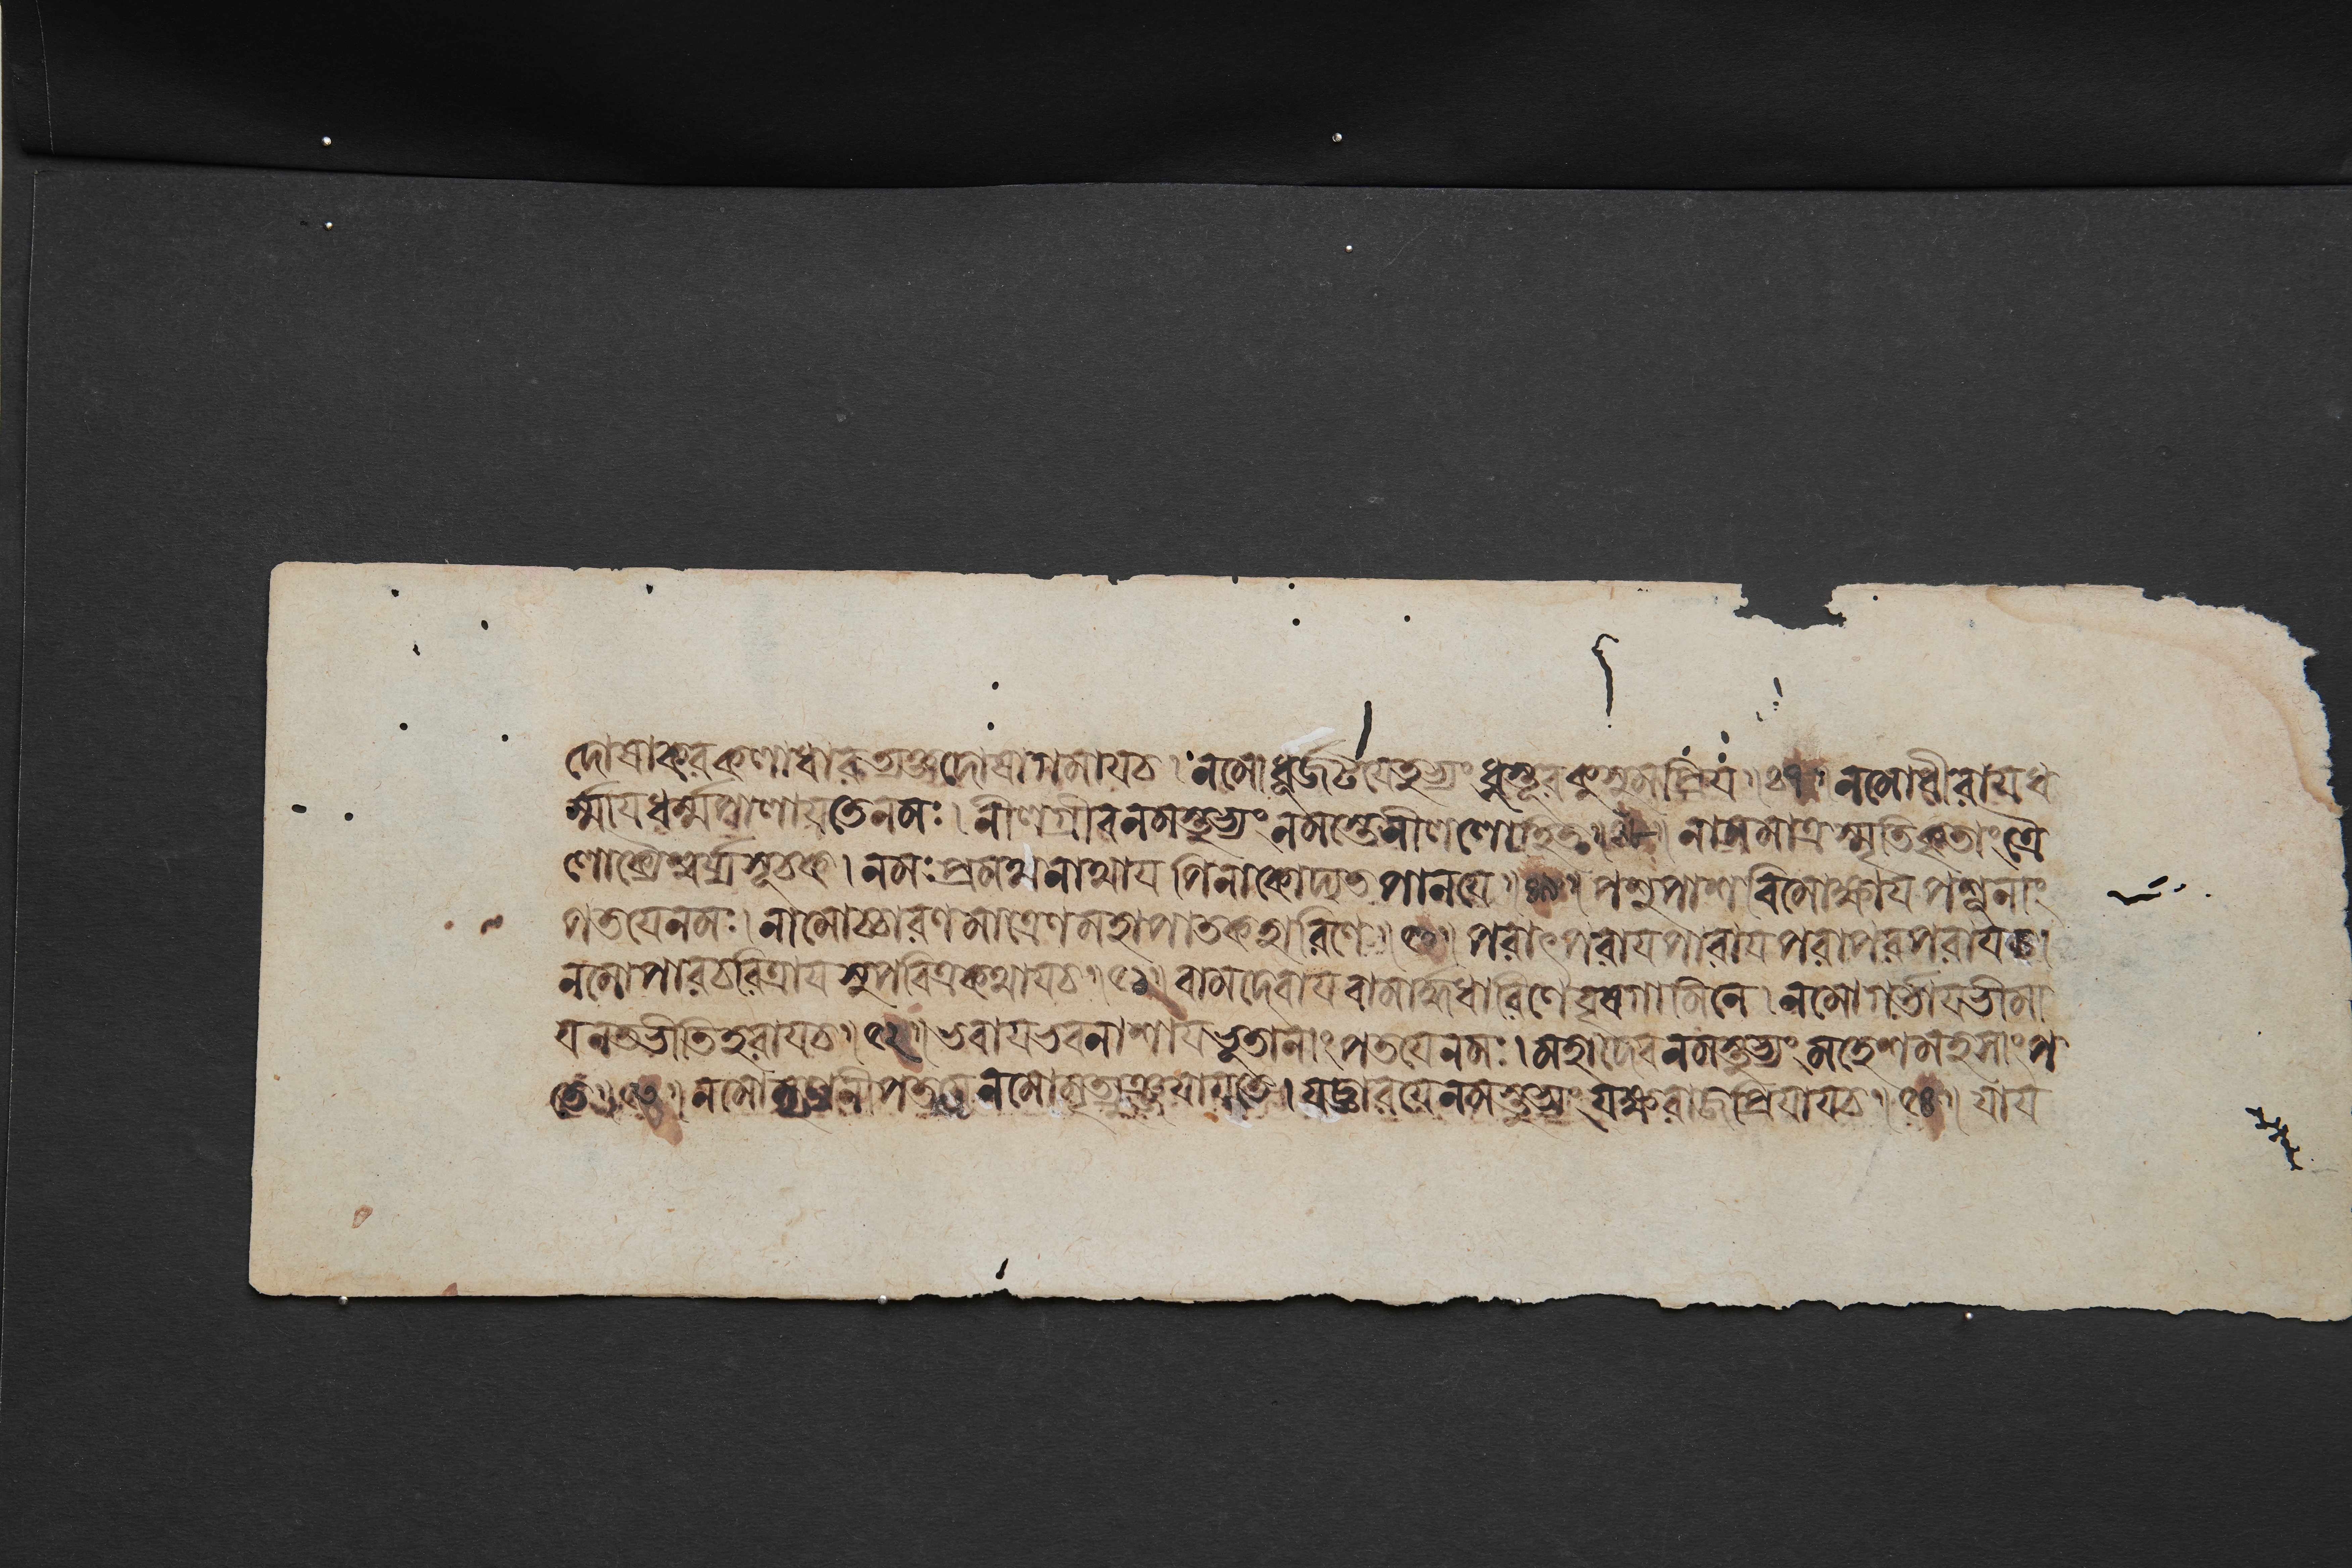 দোষাকরকলাধারত্যক্তদোষাগমাযচ । নমোধূর্জটযেতুভ্যংধুস্তূরকুসুমপ্রিয ॥ নমোধীরাযধ
র্ম্মাযধর্ম্মপালাযতেনমঃ । নীলগ্রীবনমস্তুভ্যংনমস্তেনীললোহিত ॥ নামমাত্রস্মৃতিকৃতাংত্রৈ
লোক্যৈশ্বর্য্যসূচক । নমঃপ্রমথনাথায পিনাকোদ্যতপানযে ॥ পশুপাশবিমোক্ষায পশূনাং
পতযেনমঃ । নামোচ্চারণমাত্রেণমহাপাতকহারিণে ॥ ৫০ ॥ পরাৎপরাযপারাযপরাপরপরাযচ ।
নমোপারচরিত্রায সুপবিত্রকথাযচ ॥ ৫১ ॥ বামদেবাযবামার্দ্ধধারিণেবৃষগামিনে । নমোগর্ভাযভীমা
যনতভীতিহরাযচ ॥ ৫২ ॥ ভবাযভবনাশাযভূতানাংপতযেনমঃ । মহাদেবনমস্তুভ্যংমহেশমহসাংপ
তে ॥ ৫৩ ॥ নমোমৃডানীপতযেনমোমৃত্যুঞ্জযাযতে । যজ্ঞারযেনমস্তুভ্যংযক্ষরাজপ্রিযাযচ ॥ ৫৪ ॥ যায